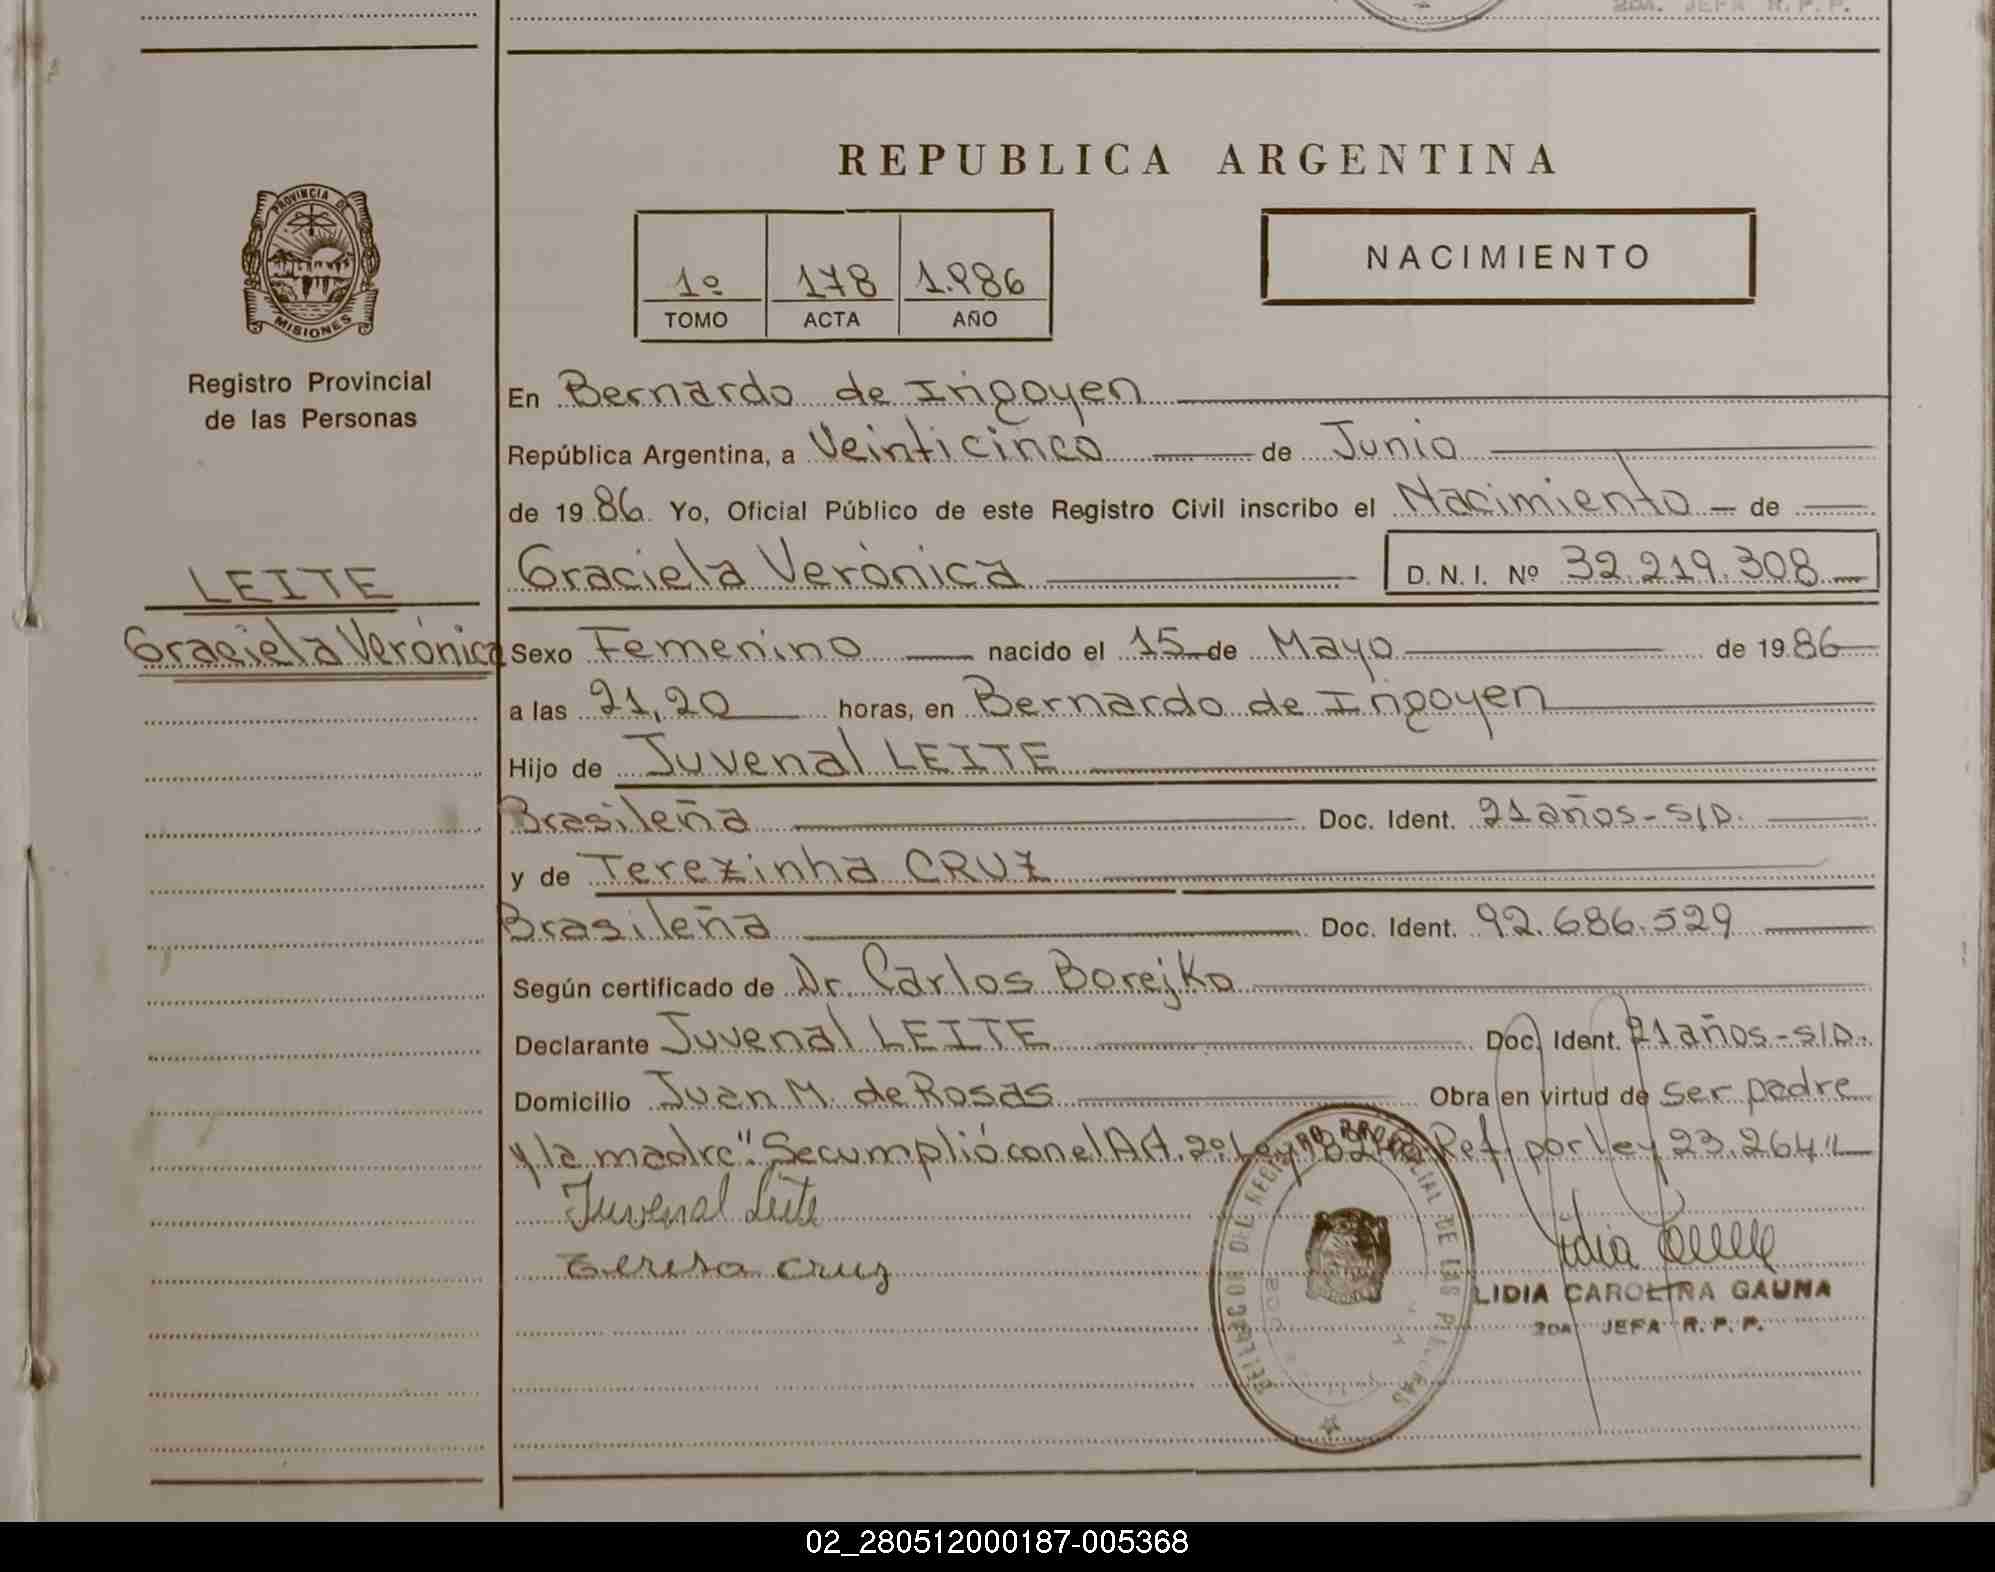 2DA. JEFA R.P.P.
REPUBLICA ARGENTINA
PROVINCIA DE
MISIONES
Registro Provincial
de las Personas
1º 178 1.986
TOMO ACTA AÑO
NACIMIENTO
En Bernardo de Irigoyen
República Argentina, a Veinticinco de Junio
de 1986 Yo, Oficial Público de este Registro Civil inscribo el Nacimiento de
Graciela Verónica D. N. I. Nº 32.219.308
LEITE
Graciela Verónica
Sexo Femenino nacido el 15 de Mayo de 1986
a las 21,20 horas, en Bernardo de Irigoyen
Hijo de Juvenal LEITE
Brasileña Doc. Ident. 21 años - S/D.
y de Terezinha CRUZ
Brasileña Doc. Ident. 92.686.529
Según certificado de Dr. Carlos Borejko
Declarante Juvenal LEITE Doc. Ident. 21 años - S/D.
Domicilio Juan M. de Rosas Obra en virtud de ser padre
y la madre". Se cumplió con el Art. 2º Ley Ref. por ley 23.264"
Juvenal Leite
Teresa Cruz
LIDIA CAROLINA GAUNA
2DA JEFA R. P. P.
02_280512000187-005368